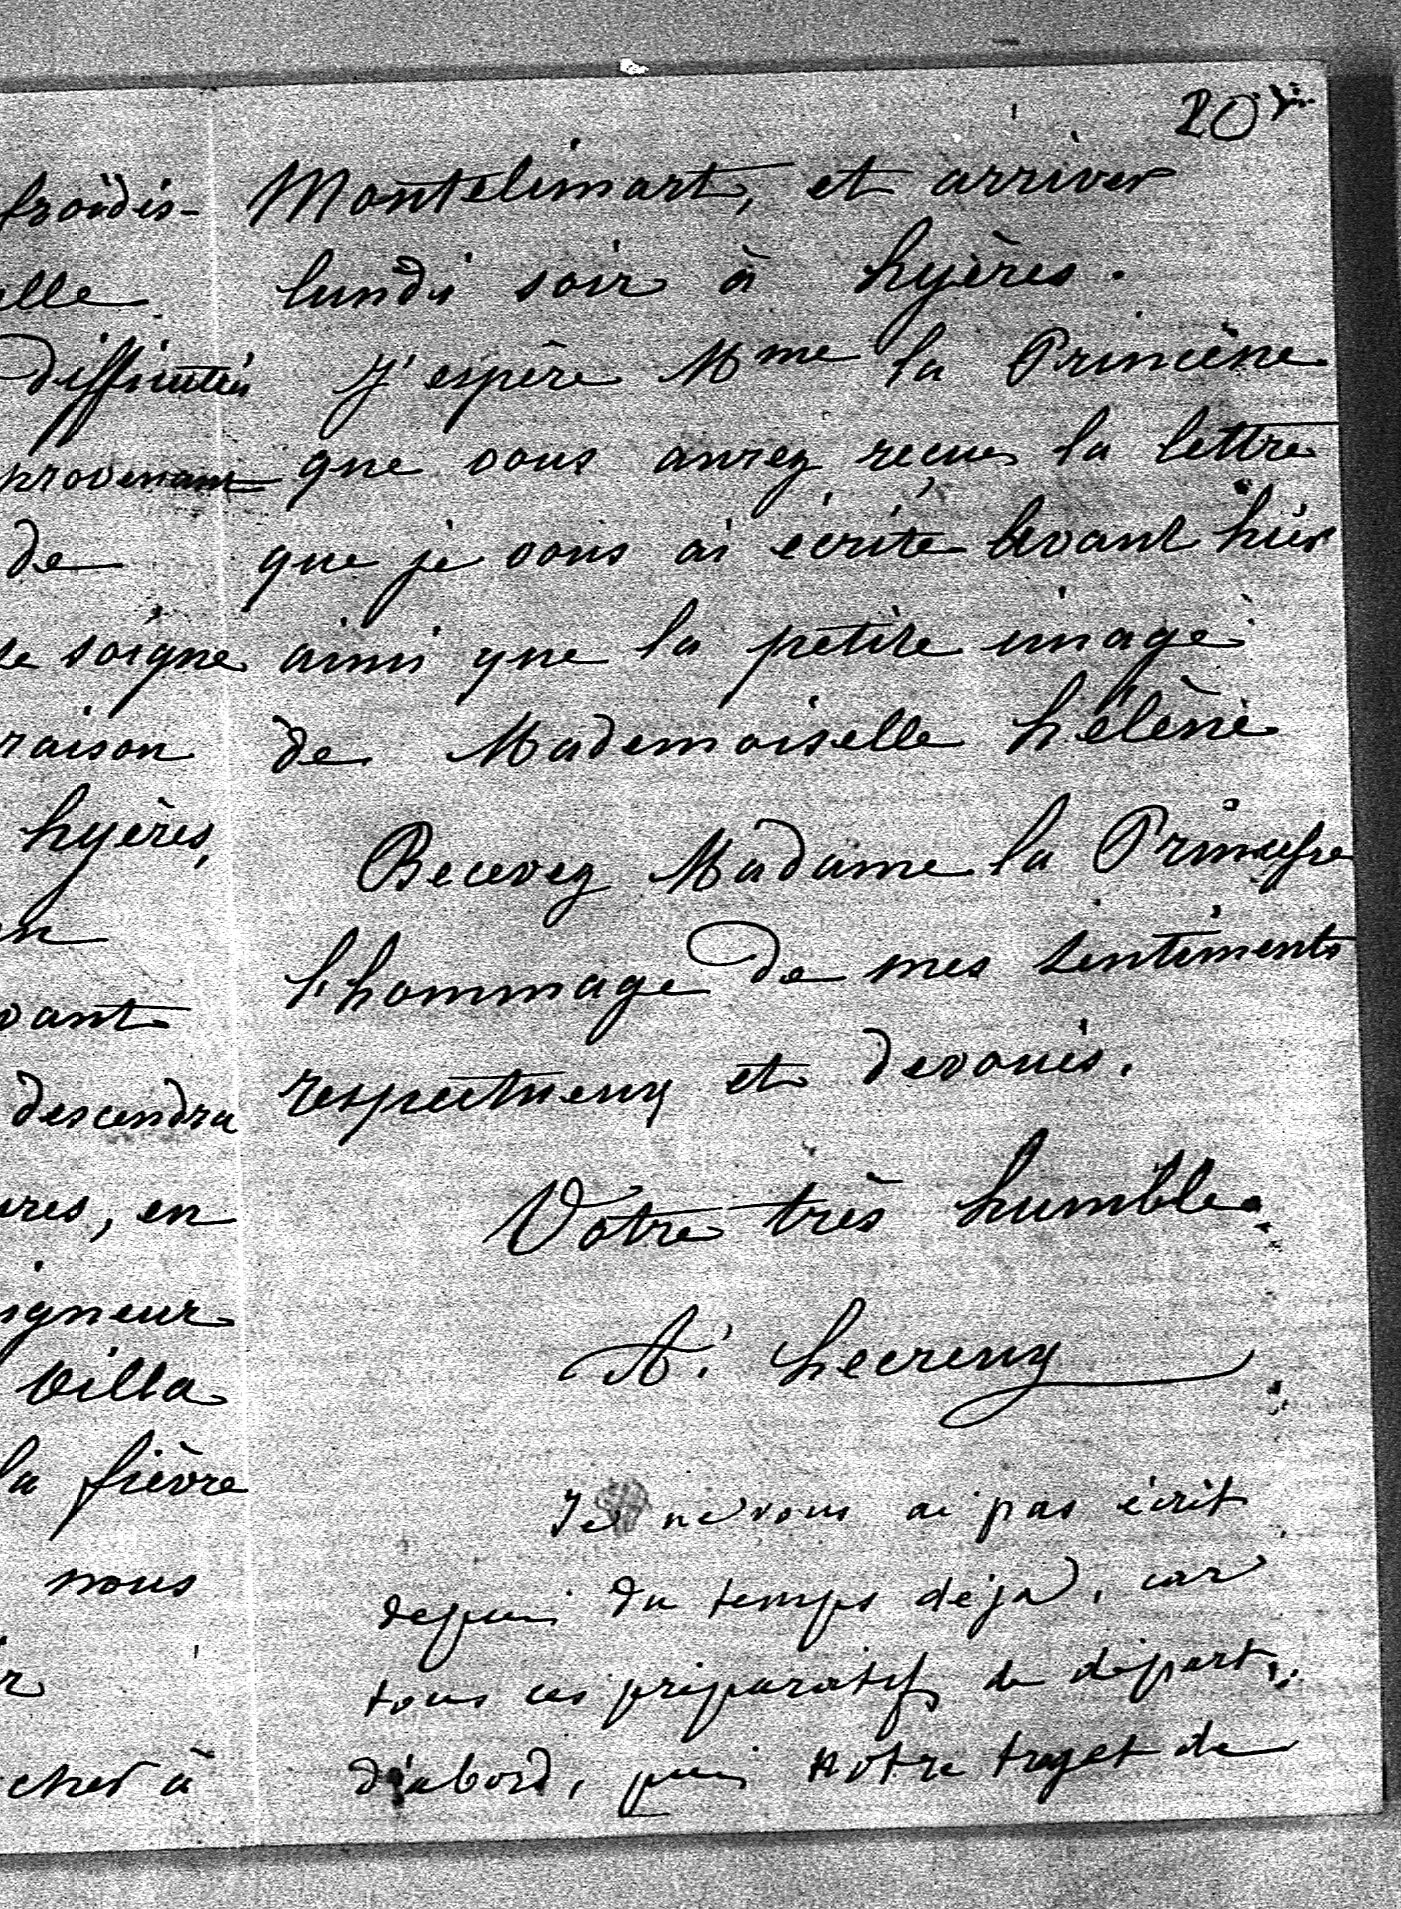 20
froidis-
elle
difficultés
provenant
de
se soigne
raison
hyères,
en
vant
descendra
ures, en
igneur
villa
la fièvre
nous
r
cher à
Montelimart, et arriver
lundi soir à hyères.
J'espère Mme la Princesse
que vous aurez recue la lettre
que je vous ai écrite avant hier
ainsi que la petite image
de Mademoiselle hélène
Recevez Madame la Princesse
l'hommage de mes sentiments
respectueux et devoués.
Votre très humble
A. Lecreux
Je ne vous ai pas écrit
depuis du temps déjà, car
tous ces préparatifs de départ
d'abord, puis notre trajet de